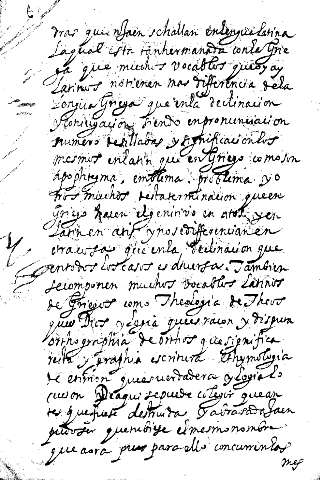 dras que en Jaen se hallan en lengua latina
la qual esta tan hermanada con la Grie
ga que muchos vocablos que ay
Latinos no tienen mas differencia de la
Lengua Griega que en la declinacion
y coniugacion siendo en pronunciacion
numero de sillabas y significacion los
mesmos en latin que en Griego como son
Apophtegma, emblema, problema y o
tros muchos desta terminacion que en
Griego hacen el genitivo en atos, y en
Latin en atis y no se differencian en
otra cossa que en la declinacion que
en todos los casos es diversa. Tambien
se componen muchos vocablos Latinos
de Griegos como Theologia de Theos
que es Dios y logia que es racon y
orthographia de orthos que significa
recta y graphia escritura Ethymologia
de etimon que es verdadera y logia lo
cucion De aqui se puede colegir que an
tes que fuese destruida y Jaen
pudo ser que tubiese el mesmo nombre
que aora pues para ello concurrin los
mes